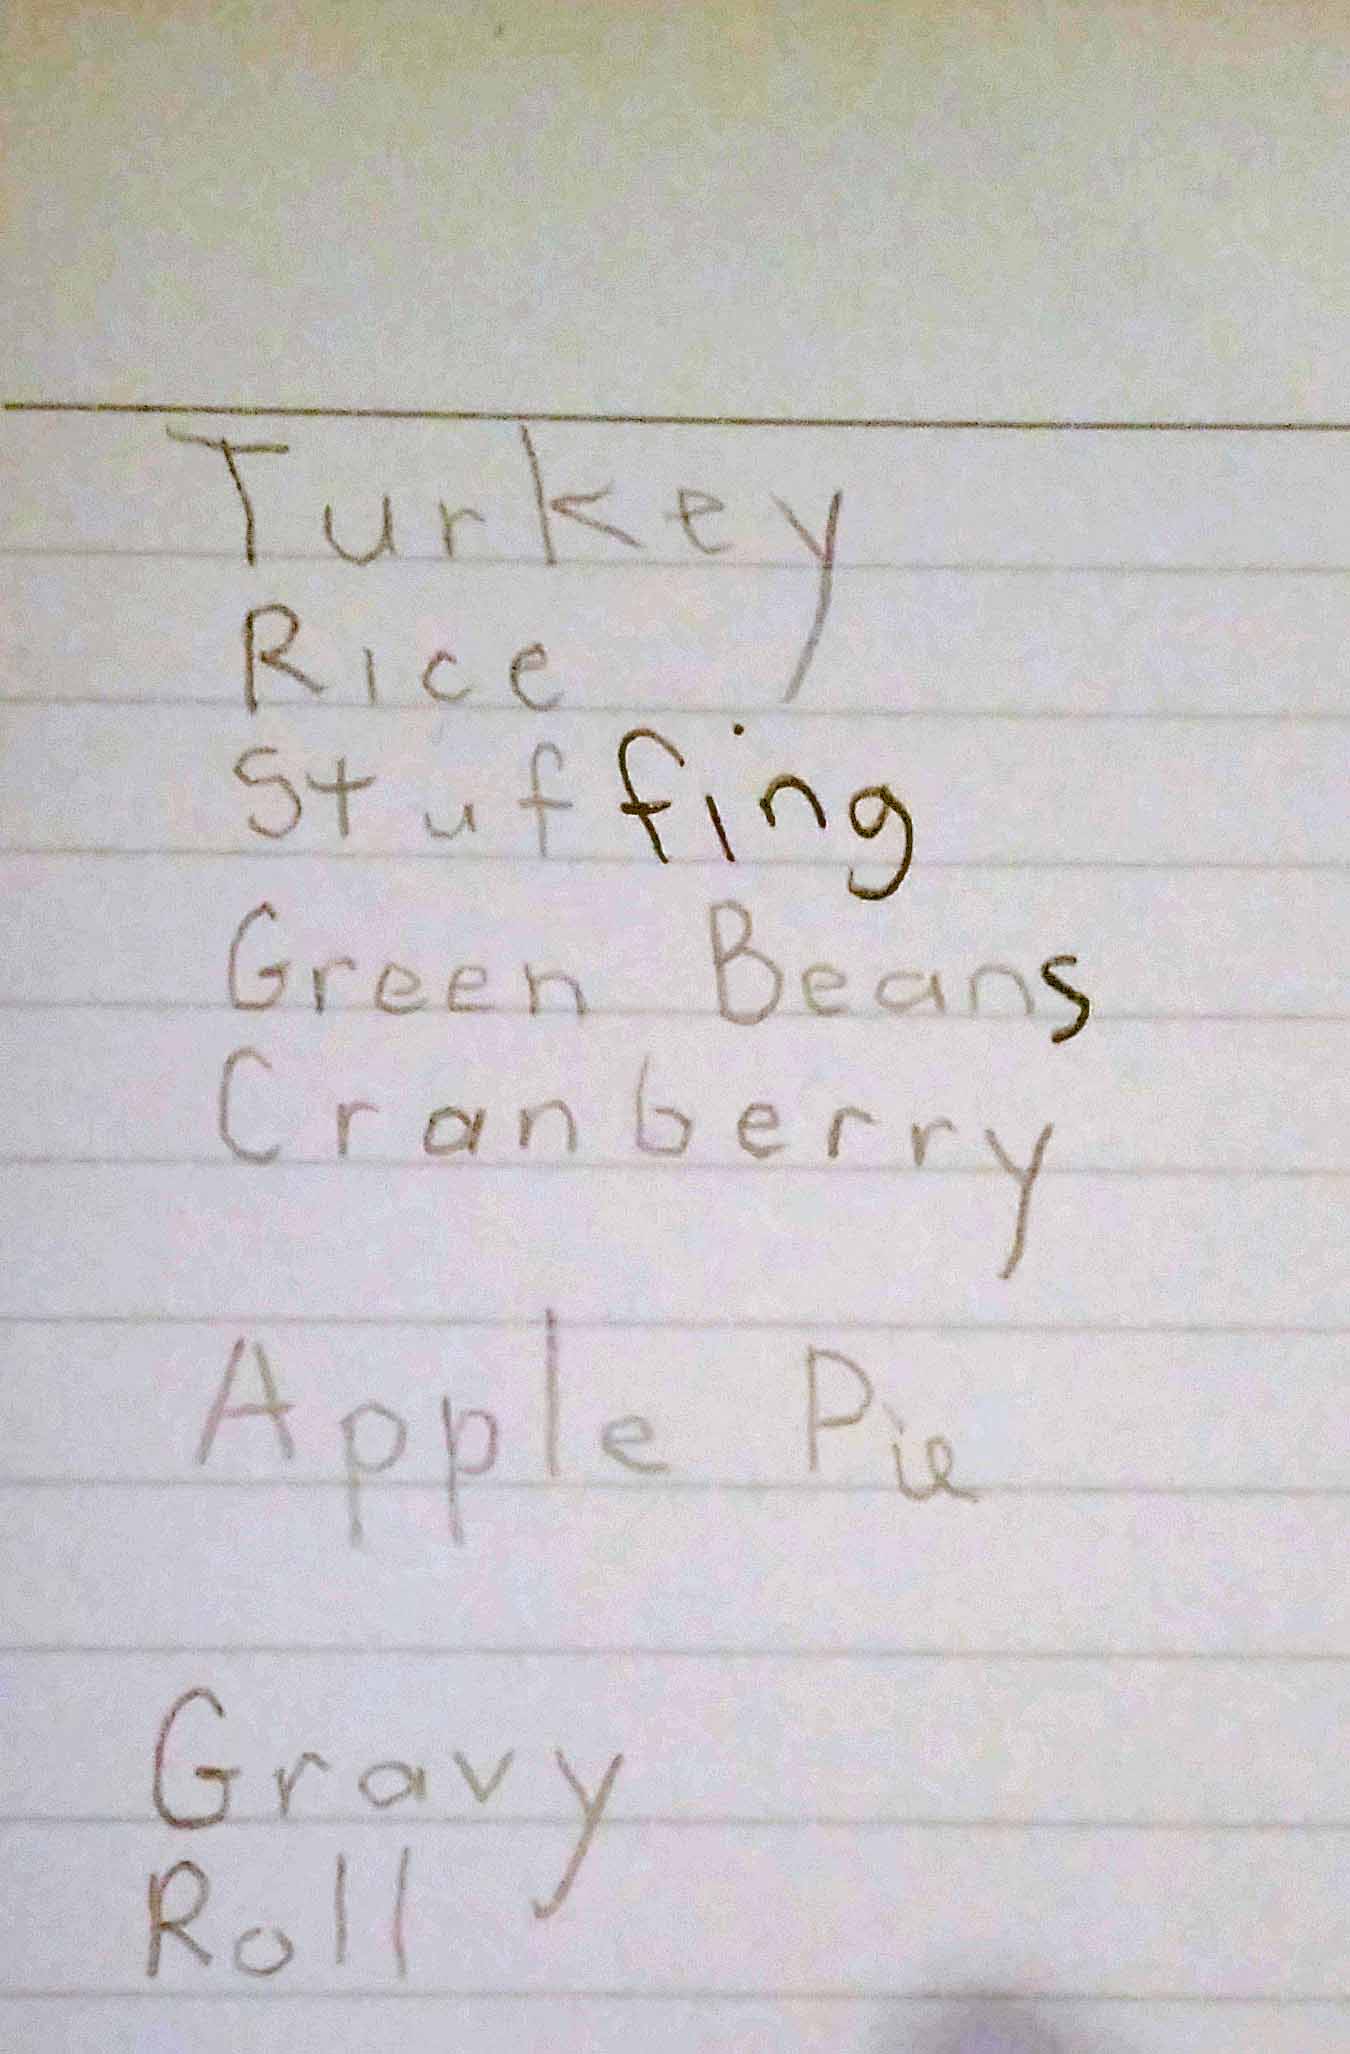 Turkey
Rice
Stuffing
Green Beans
Cranberry
Apple Pie
Gravy
Roll